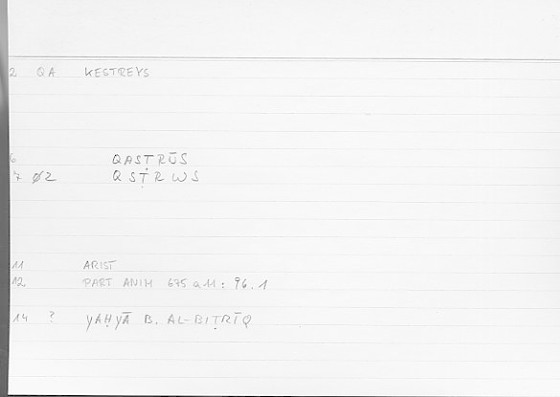 2 QA KESTREYS
6 QASṬRŪS
7 Ø2 QSṬRWS
11 ARIST
12 PART ANIM 675 a 11 : 96.1
14 ? YAḤYĀ B. AL-BIṬRĪQ